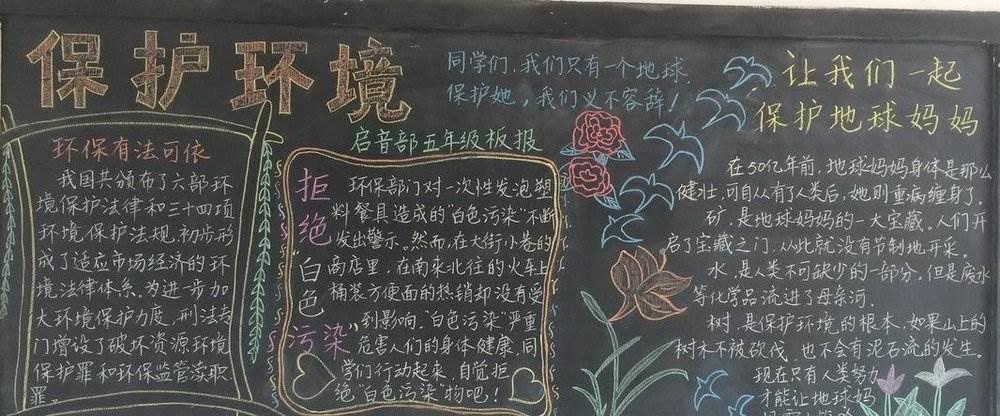 保护环境
同学们，我们只有一个地球，
保护她，我们义不容辞！
启音部五年级板报
环保有法可依
我国共颁布了六部环
境保护法律和三十四项
环境保护法规，初步形
成了适应市场经济的环
境法律体系。为进步加
大环境保护力度，刑法专
门增设了破坏资源环境
保护罪和环保监管渎职
罪。
拒绝"白色污染"
环保部门对一次性发泡塑
料餐具造成的"白色污染"不断
发出警示。然而，在大街小巷的
商店里，在南来北往的火车上
桶装方便面的热销却没有受
到影响。"白色污染"严重
危害人们的身体健康，同
学们行动起来，自觉拒
绝"白色污染"物吧！
让我们一起
保护地球妈妈
在50亿年前，地球妈妈身体是那么
健壮，可自从有了人类后，她则重病缠身了。
矿，是地球妈妈的一大宝藏。人们开
启了宝藏之门，从此就没有节制地开采。
水，是人类不可缺少的一部分，但是废水
等化学品流进了母亲河。
树，是保护环境的根本，如果山上的
树木不被砍伐，也不会有泥石流的发生。
现在只有人类努力
才能让地球妈